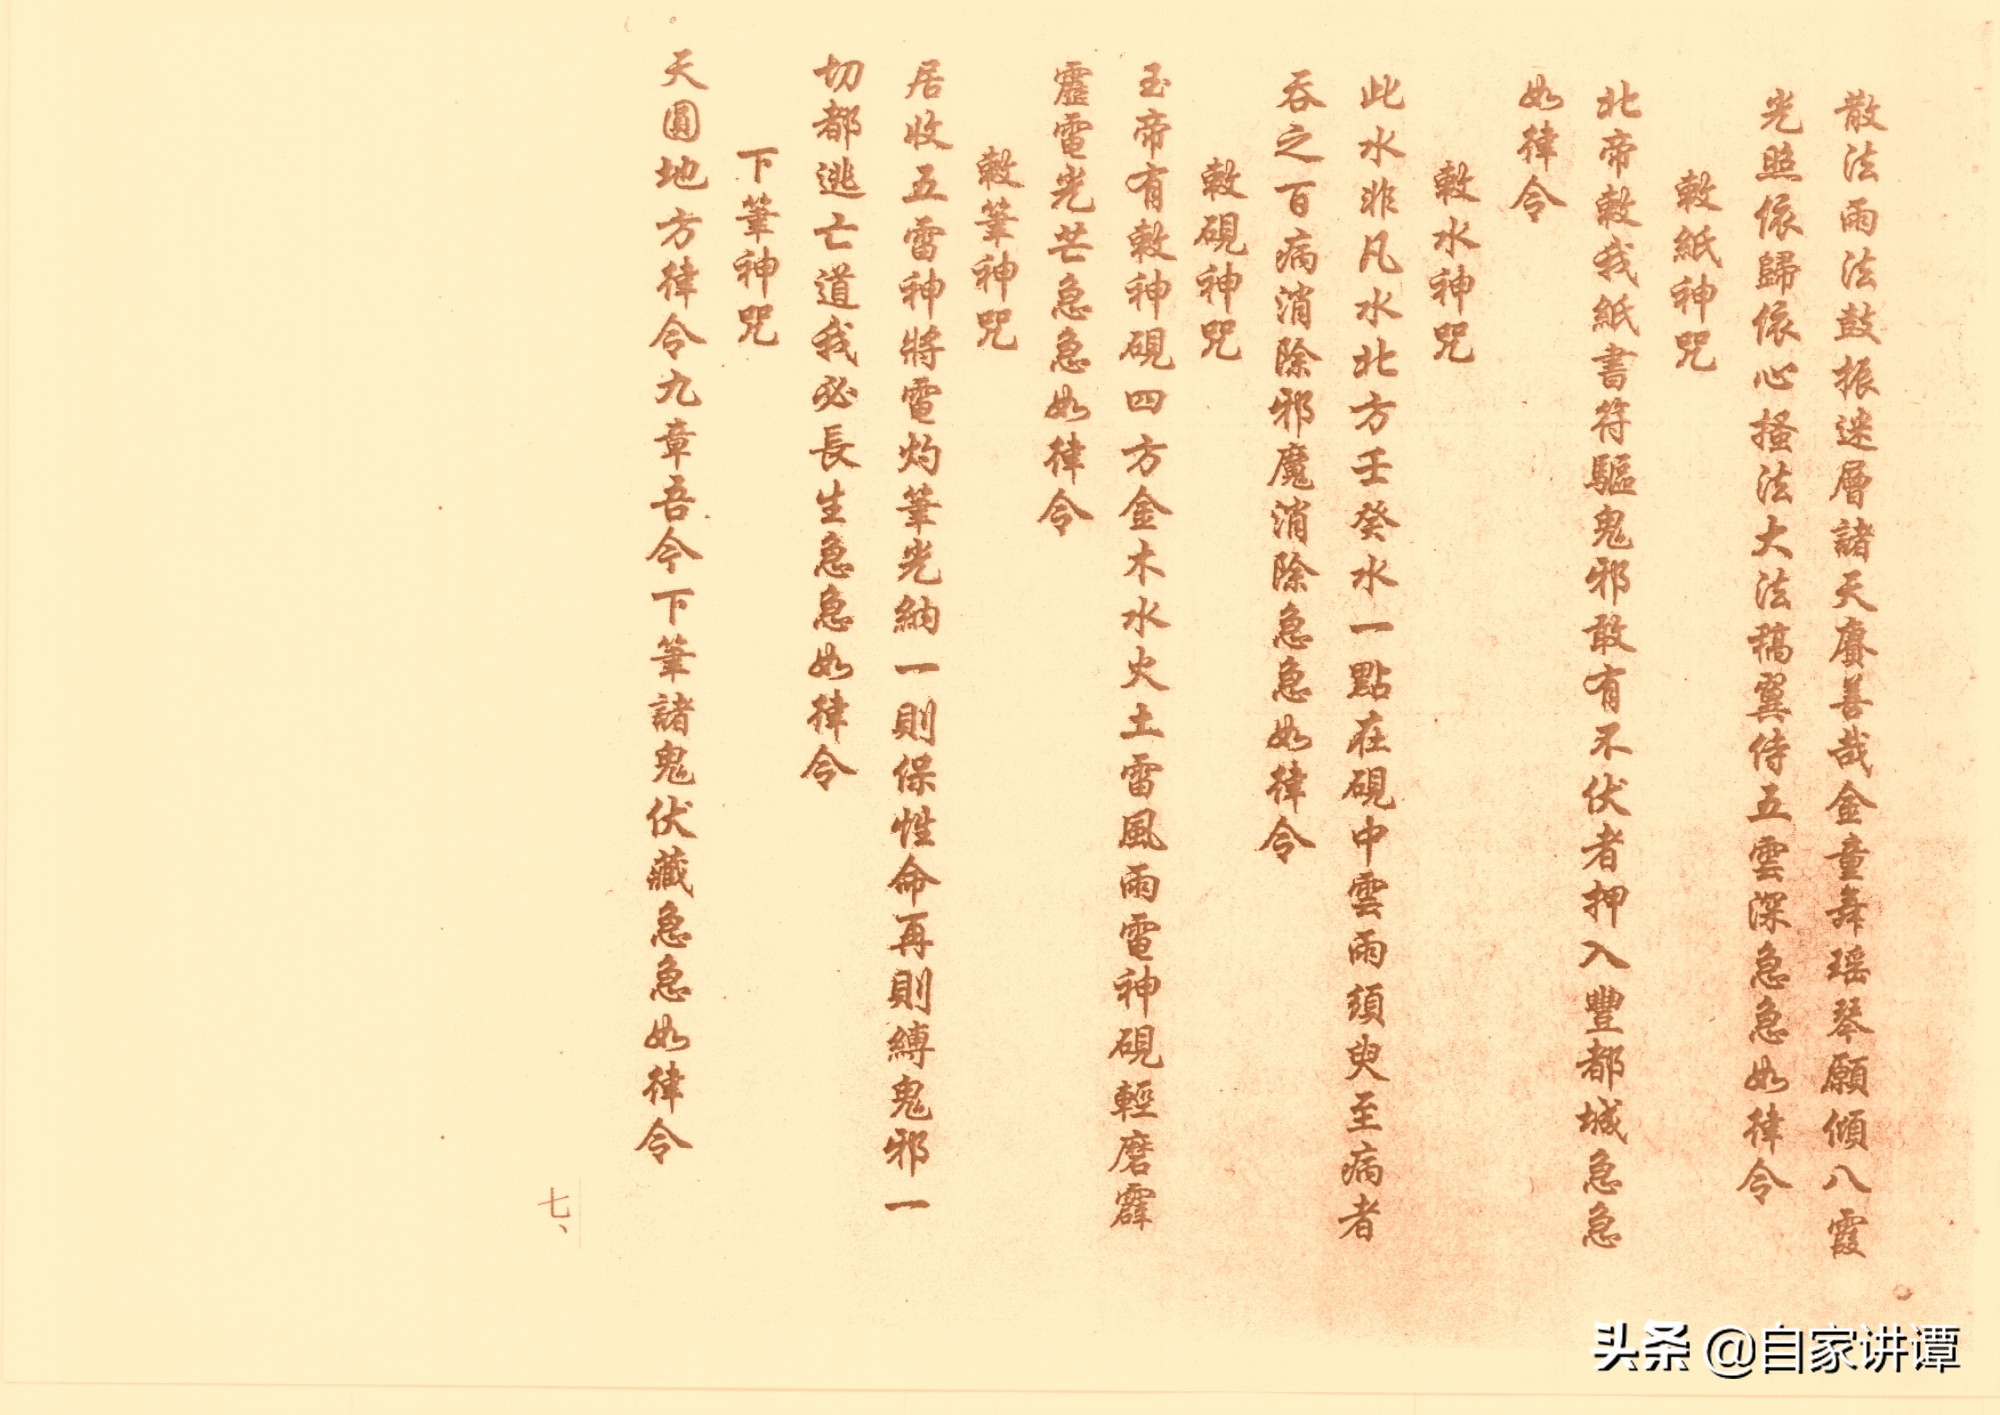 散法雨法鼓振迷層諸天賡善哉金童舞瑶琴願傾八霞
光照依歸依心掻法大法稿翼侍五雲深急急如律令
敕紙神咒
北帝敕我紙書符驅鬼邪敢有不伏者押入豐都城急急
如律令
敕水神咒
此水非凡水北方壬癸水一點在硯中雲雨須臾至病者
吞之百病消除邪魔消除急急如律令
敕硯神咒
玉帝有敕神硯四方金木水火土雷風雨電神硯輕磨霹
靂電光芒急急如律令
敕筆神咒
居收五雷神將電灼筆光納一則保性命再則縛鬼邪一
切都逃亡道我必長生急急如律令
下筆神咒
天圓地方律令九章吾今下筆諸鬼伏藏急急如律令
七、
头条 @自家讲谭